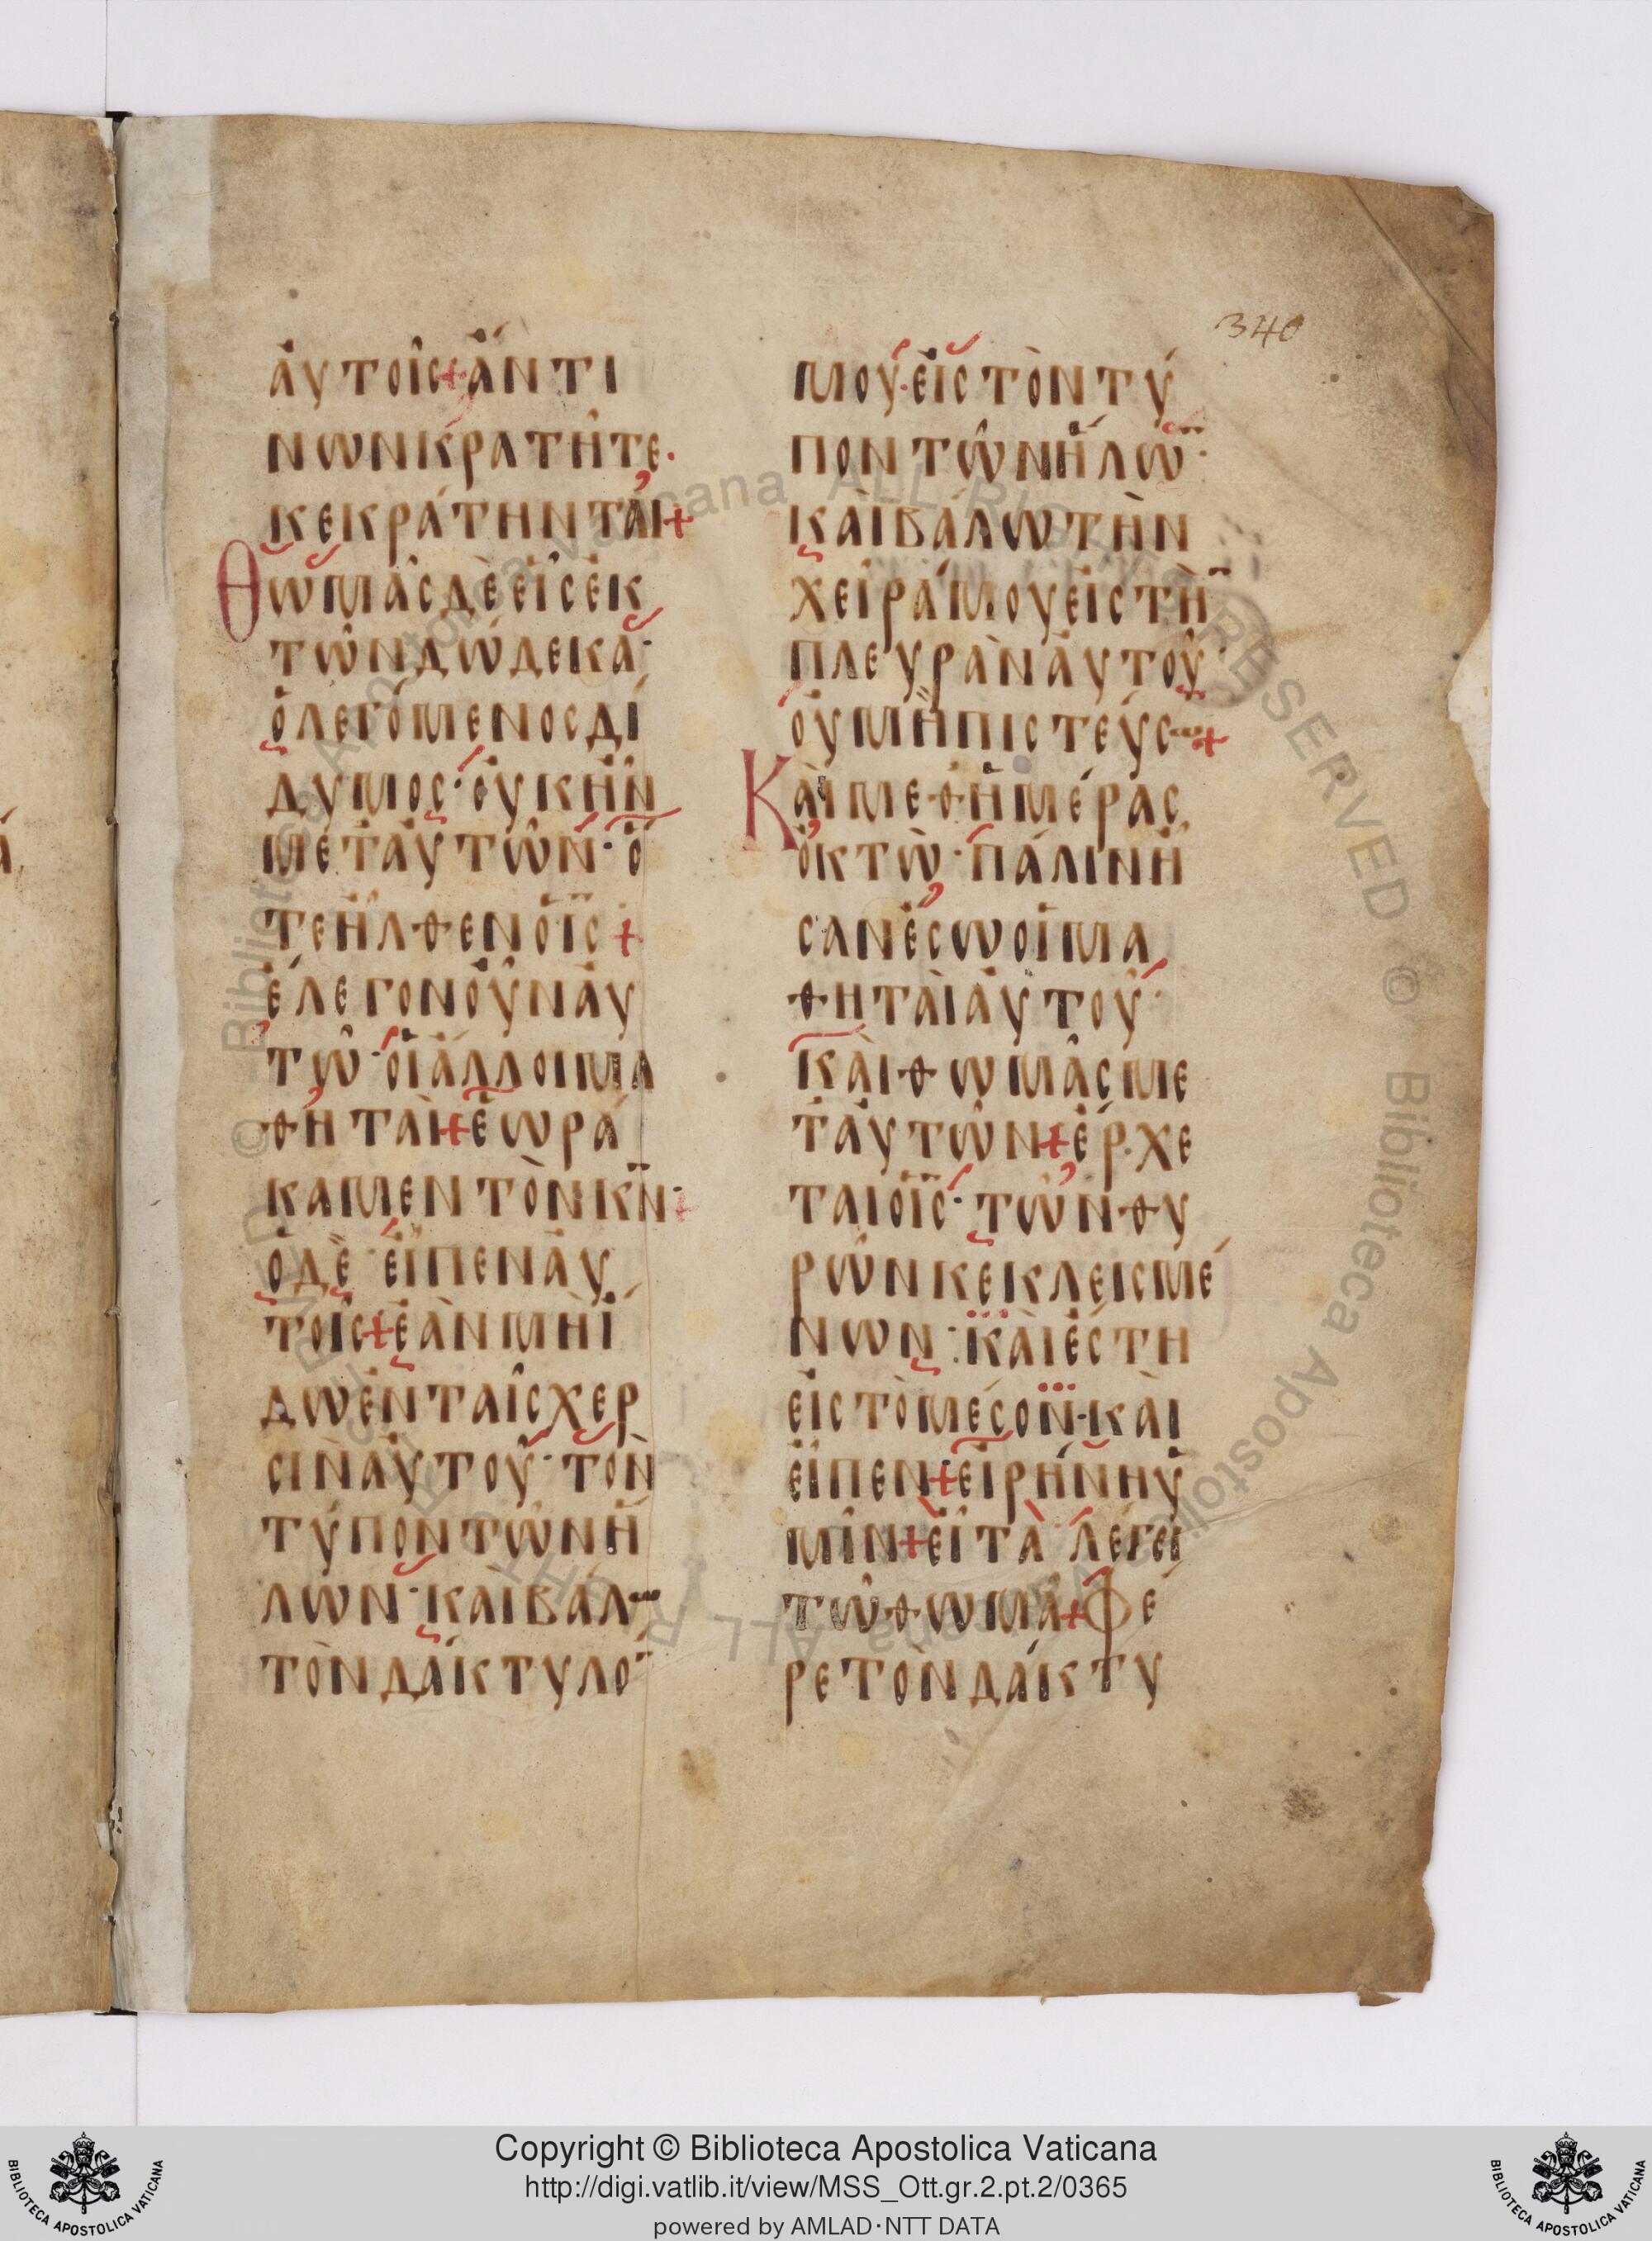 340
ἀυτοῖς + ἄν τι
νων κρατῆτε.
κεκράτηνται +
Θωμᾶς δὲ εἷς ἐκ
τῶν δώδεκα·
ὁ λεγόμενος δί
δυμος· οὐκ ἦν
μετ' αὐτῶν· ὅ
τε ἦλθεν ὁ ις +
ἔλεγον οὖν αὐ
τῷ· οἱ ἄλλοι μα
θηταὶ + ἑωρά
καμεν τὸν κν·
ὁ δὲ εἶπεν αὐ
τοῖς + ἐὰν μὴ ἴ
δω ἐν ταῖς χερ
σὶν αὐτοῦ· τὸν
τύπον τῶν ἥ
λων· καὶ βάλω
τὸν δάκτυλο̄
μου· εἰς τὸν τύ
πον τῶν ἥλω̄·
καὶ βάλω τὴν
χεῖρά μου εἰς τὴ̄
πλευρὰν αὐτοῦ·
οὐ μὴ πιστεύσω +
Καὶ μεθ' ἡμέρας
ὀκτὼ· πάλιν ἦ
σαν ἔσω οἱ μα
θηταὶ αὐτοῦ·
καὶ θωμᾶς με
τ' αὐτῶν + ἔρχε
ται ὁ ις· τῶν θυ
ρῶν κεκλεισμέ
νων· καὶ ἔστη
εἰς τὸ μέσον· καὶ
εἶπεν + εἰρήνη ὑ
μῖν + εἶτα λέγει
τῷ θωμᾷ + Φέ
ρε τὸν δάκτυ
Copyright © Biblioteca Apostolica Vaticana
http://digi.vatlib.it/view/MSS_Ott.gr.2.pt.2/0365
powered by AMLAD·NTT DATA
BIBLIOTECA APOSTOLICA VATICANA
BIBLIOTECA APOSTOLICA VATICANA